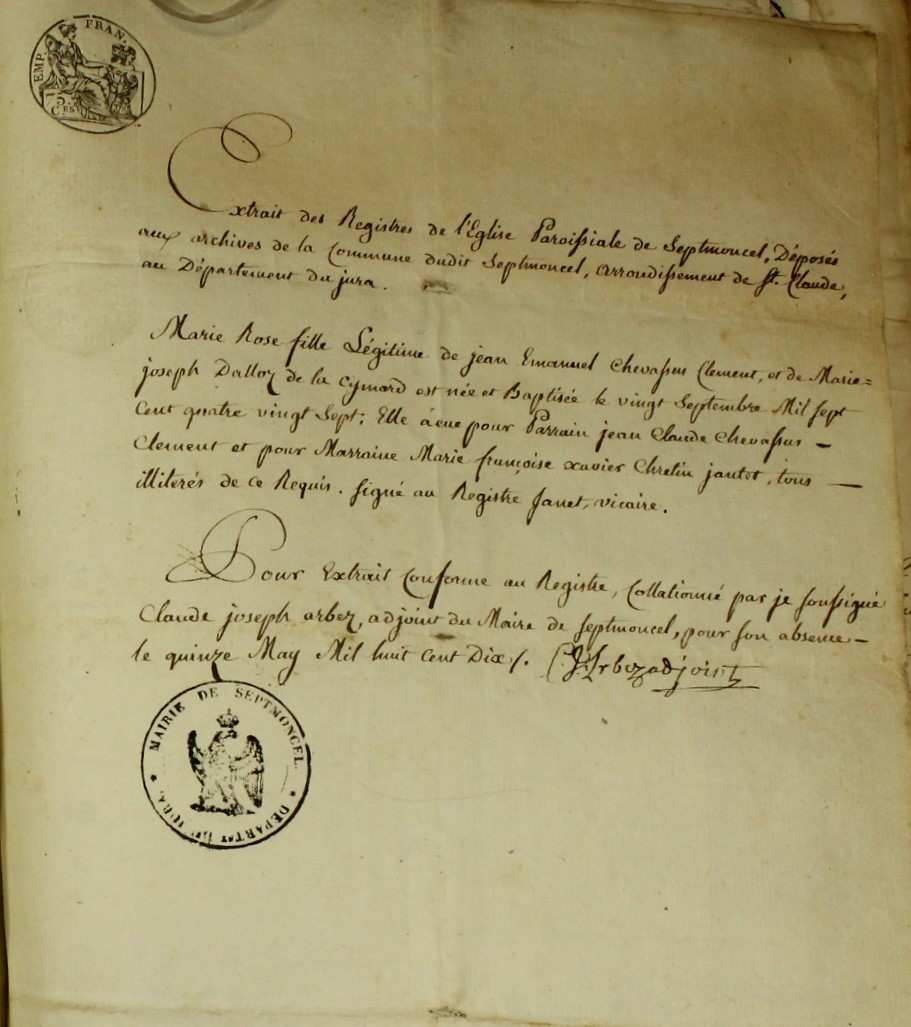 EMP. FRAN.
5. Ces
Extrait des Registres de l'Eglise Paroissiale de Septmoncel, Déposés
aux archives de la Commune dudit Septmoncel, arrondissement de St. Claude,
au Département du jura.
Marie Rose fille Légitime de jean Emanuel Chevassus Clement, et de Marie=
joseph Dalloz de la Cymard est née et Baptisée le vingt Septembre Mil sept
Cent quatre vingt Sept; Elle à eue pour Parrain jean Claude Chevassus -
Clement et pour Marraine Marie françoise xavier Chretin jantet, tous —
illiterés de ce Requis. signé au Registre Janet, vicaire.
Pour Extrait Conforme au Registre, Collationné par je soussigné
Claude joseph arbez, adjoint du Maire de Septmoncel, pour son absence -
le quinze May Mil huit Cent Dix /. CJ Arbez adjoint
MAIRIE DE SEPTMONCEL
* DEPARTt DU JURA. *